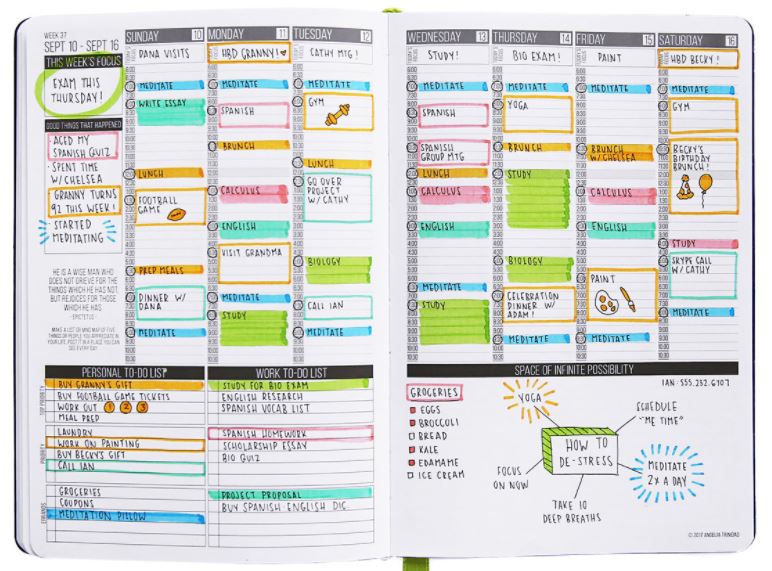 WEEK 37
SEPT 10 - SEPT 16
THIS WEEK'S FOCUS
EXAM THIS
THURSDAY!
GOOD THINGS THAT HAPPENED
· ACED MY
SPANISH QUIZ
· SPENT TIME
W/CHELSEA
GRANNY TURNS
92 THIS WEEK!
STARTED
MEDITATING
HE IS A WISE MAN WHO
DOES NOT GRIEVE FOR THE
THINGS WHICH HE HAS NOT
BUT REJOICES FOR THOSE
WHICH HE HAS
- EPICTETUS -
MAKE A LIST OR MIND MAP OF FIVE
THINGS OR PEOPLE YOU APPRECIATE IN
YOUR LIFE. POST IT IN A PLACE YOU CAN
SEE EVERY DAY.
SUNDAY 10
DANA VISITS
MEDITATE
WRITE ESSAY
LUNCH
FOOTBALL
GAME
PREP MEALS
DINNER W/
DANA
MEDITATE
MONDAY 11
HBD GRANNY!
MEDITATE
SPANISH
BRUNCH
CALCULUS
ENGLISH
VISIT GRANDMA
MEDITATE
STUDY
TUESDAY 12
CATHY MTG!
MEDITATE
GYM
LUNCH
GO OVER
PROJECT
W/CATHY
BIOLOGY
CALL IAN
MEDITATE
PERSONAL TO-DO LIST
TOP PRIORITY
BUY GRANNY'S GIFT
BUY FOOTBALL GAME TICKETS
WORK OUT 1 2 3
MEAL PREP
PRIORITY
LAUNDRY
WORK ON PAINTING
BUY BECKY'S GIFT
CALL IAN
ERRANDS
GROCERIES
COUPONS
MEDITATION PILLOW
WORK TO-DO LIST
STUDY FOR BIO EXAM
ENGLISH RESEARCH
SPANISH VOCAB LIST
SPANISH HOMEWORK
SCHOLARSHIP ESSAY
BIO QUIZ
PROJECT PROPOSAL
BUY SPANISH-ENGLISH DIC.
WEDNESDAY 13
STUDY!
MEDITATE
SPANISH
SPANISH
GROUP MTG
LUNCH
CALCULUS
ENGLISH
MEDITATE
STUDY
THURSDAY 14
BIO EXAM!
MEDITATE
YOGA
BRUNCH
STUDY
BIOLOGY
CELEBRATION
DINNER W/
ADAM!
MEDITATE
FRIDAY 15
PAINT
MEDITATE
BRUNCH
W/CHELSEA
CALCULUS
ENGLISH
PAINT
MEDITATE
SATURDAY 16
HBD BECKY!
MEDITATE
GYM
BECKY'S
BIRTHDAY
BRUNCH!
STUDY
SKYPE CALL
W/CATHY
MEDITATE
SPACE OF INFINITE POSSIBILITY
GROCERIES
EGGS
BROCCOLI
BREAD
KALE
EDAMAME
ICE CREAM
IAN - 555.232.6107
YOGA
SCHEDULE
"ME TIME"
HOW TO
DE-STRESS
MEDITATE
2X A DAY
FOCUS
ON NOW
TAKE 10
DEEP BREATHS
© 2017 ANGELIA TRINIDAD